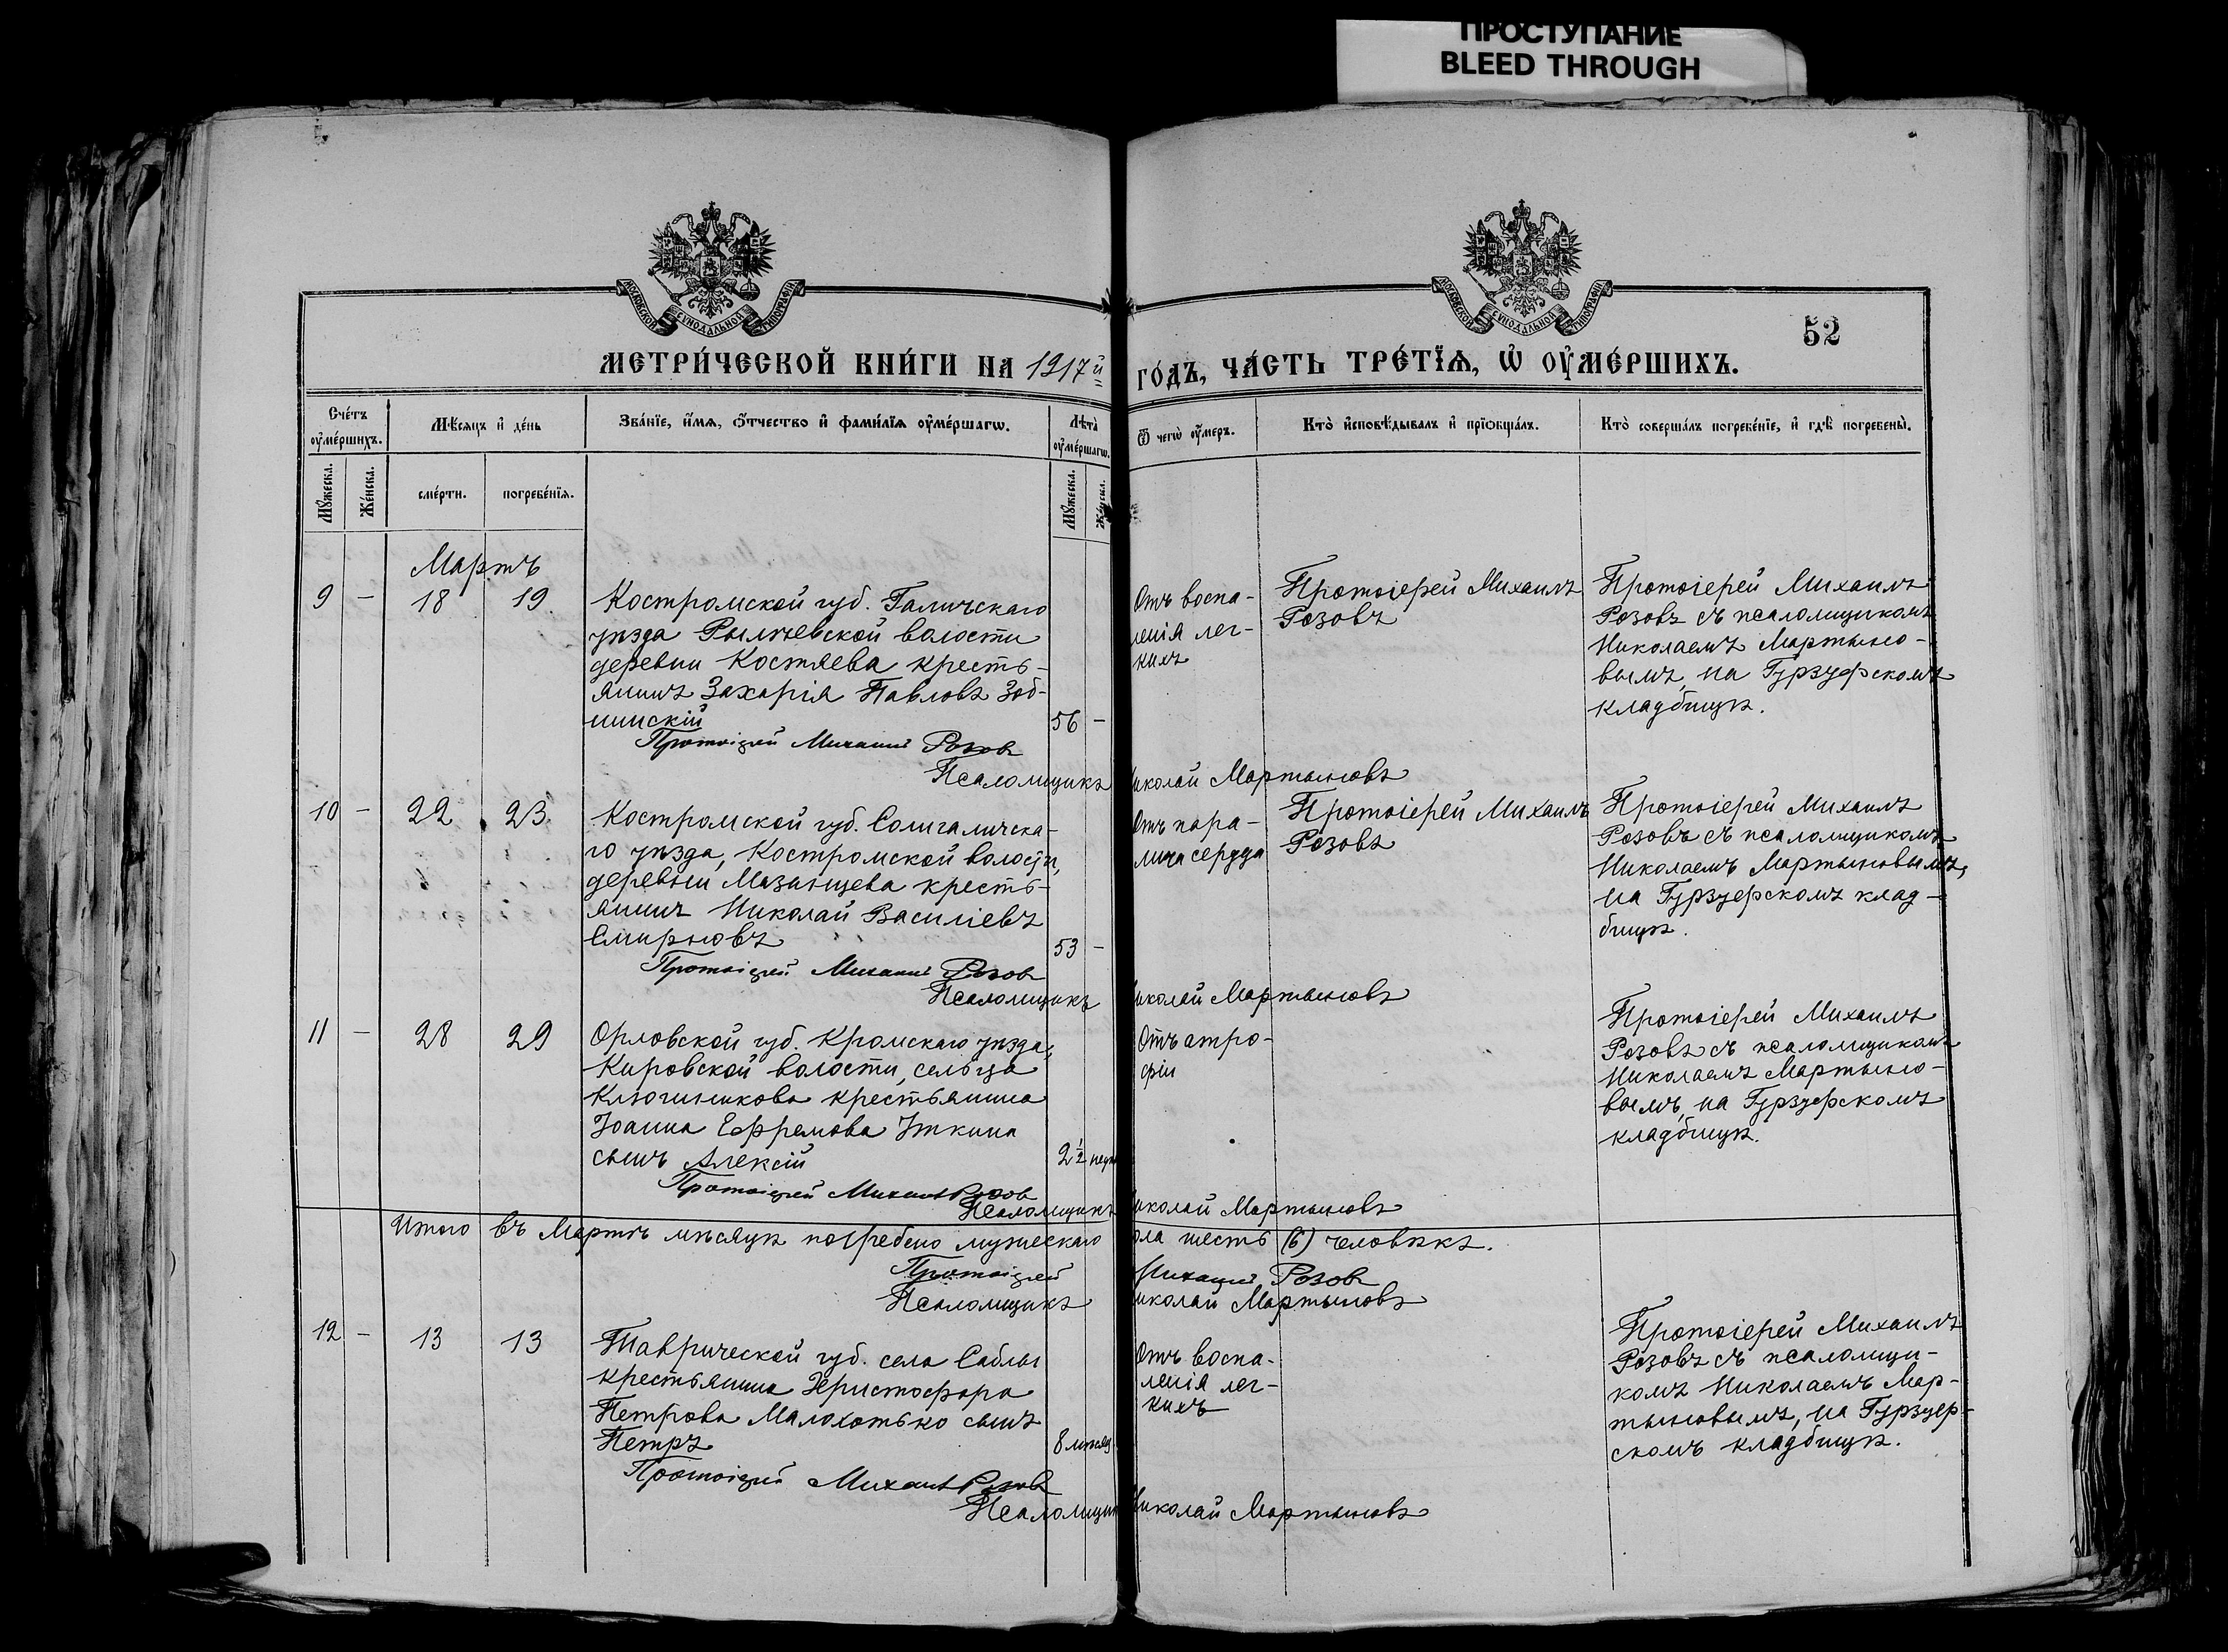 ПРОСТУПАНИЕ
BLEED THROUGH
МОСКОВСКОЙ СУНОДАЛЬНОЙ ТИПОГРАФІИ
МОСКОВСКОЙ СУНОДАЛЬНОЙ ТИПОГРАФІИ
52
МЕТРИ́ЧЕСКОЙ КНИ́ГИ НА 1917й ГО́ДЪ, ЧА́СТЬ ТРЕ́ТЇѦ, Ѡ҆ ОУ҆МЕ́РШИХЪ.
Сче́тъ оу҆ме́ршихъ.
Мѣ́сяцъ и҆ де́нь
Зва́нїе, и҆́мѧ, ѻ҆́тчество и҆ фами́лїѧ оу҆ме́ршагѡ.
Лѣ́та оу҆ме́ршагѡ.
Ѿ чегѡ̀ оу҆́меръ.
Кто̀ и҆сповѣ́дывалъ и҆ прїѡбща́лъ.
Кто̀ соверша́лъ погребе́нїе, и҆ гдѣ̀ погребены̀.
Мꙋ́жеска.
Же́нска.
сме́рти.
погребе́нїѧ.
Мꙋ́жеска.
Же́нска.
Мартъ
9 – 18 19.
Костромской губ. Галичскаго
уѣзда Рылѣевской волости
деревни Костяева кресть-
янинъ Захарія Павловъ Зоб-
нинскій
56 –
Отъ воспа-
ленія лег-
кихъ
Протоіерей Михаилъ
Розовъ
Протоіерей Михаилъ
Розовъ съ псаломщикомъ
Николаемъ Мартыно-
вымъ, на Гурзуфскомъ
кладбищѣ.
Протоіерей Михаилъ Розовъ
Псаломщикъ Николай Мартыновъ
10 – 22 23.
Костромской губ. Солигаличска-
го уѣзда, Костромской волости,
деревни Мазинцева кресть-
янинъ Николай Василіевъ
Смирновъ
53 –
Отъ пара-
лича сердца
Протоіерей Михаилъ
Розовъ
Протоіерей Михаилъ
Розовъ съ псаломщикомъ
Николаемъ Мартыновымъ,
на Гурзуфскомъ клад-
бищѣ.
Протоіерей Михаилъ Розовъ
Псаломщикъ Николай Мартыновъ
11 – 28 29
Орловской губ. Кромскаго уѣзда,
Кировской волости, сельца
Ключиникова крестьянина
Іоанна Ефремова Уткина
сынъ Алексій
2½ нед
Отъ атро-
фіи
Протоіерей Михаилъ
Розовъ съ псаломщикомъ
Николаемъ Мартыно-
вымъ, на Гурзуфскомъ
кладбищѣ.
Протоіерей Михаилъ Розовъ
Псаломщикъ Николай Мартыновъ
Итого въ Мартѣ мѣсяцѣ погребено мужескаго пола шесть (6) человѣкъ.
Протоіерей Михаилъ Розовъ
Псаломщикъ Николай Мартыновъ
12 – 13 13
Таврической губ. села Саблы
крестьянина Христофора
Петрова Малохатько сынъ
Петръ
8 мѣсяц
Отъ воспа-
ленія лег-
кихъ
Протоіерей Михаилъ
Розовъ съ псаломщи-
комъ Николаемъ Мар-
тыновымъ, на Гурзуф-
скомъ кладбищѣ.
Протоіерей Михаилъ Розовъ
Псаломщикъ Николай Мартыновъ